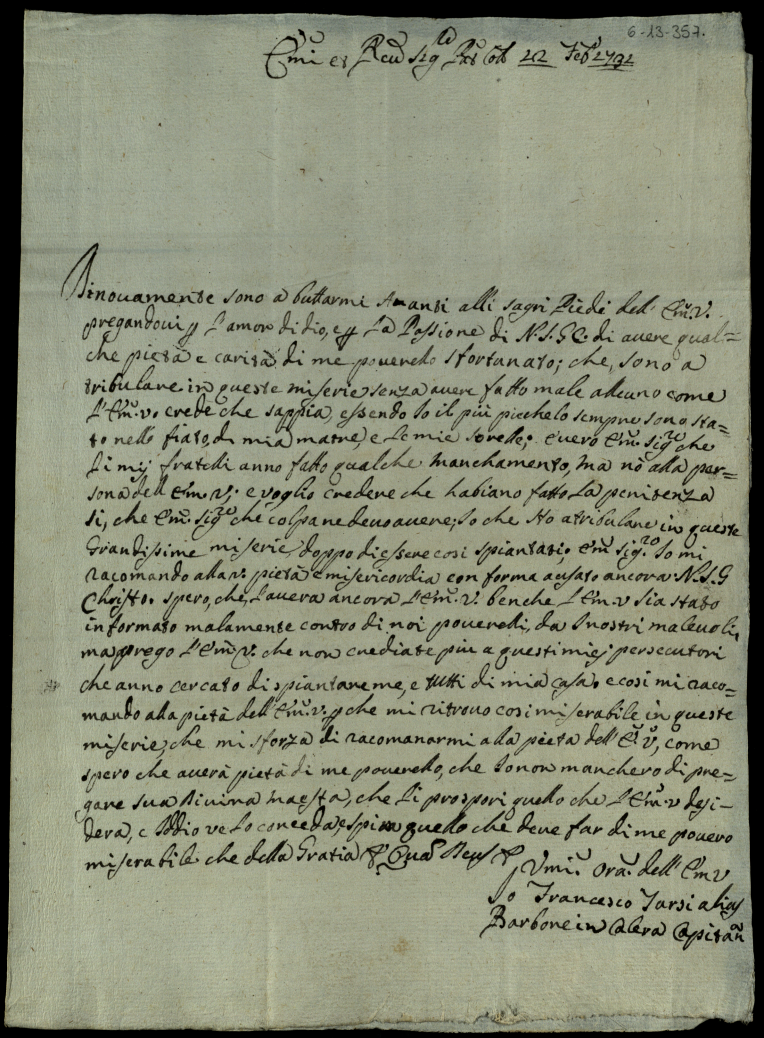 6-13-357.
Emi et Reu Sig. re Prs Coll 22 Feb 1732
Rinouamente sono a buttarmi Auanti alli sagri Piedi dell' Em. V.
pregandoui p l'amor di dio, e p La Passione di N. S. G C. di auere qual=
che pietà e carità di me pouerello sfortunato; che, sono a
tribulare in queste miserie senza auere fatto male alcuno come
l'Em. V. crede che sappia, essendo Io il più picchelo sempre sono sta=
to nello fiato di mia matre, e le mie sorelle; è uero Em. Sig. re che
li mij fratelli anno fatto qualche manchamento, ma nō alla per=
sona dell Em. V. e voglio credere che habiano fatto La penitenza
si, che Em. Sig. re che colpa ne deuo auere, Io che sto a tribulare in queste
Grandissime miserie, doppo di essere cosi spiantati; Em Sig. re Io mi
racomando alla v. pietà e misericordia con forma a usato ancora N. S. G
Christo. spero, che l'auera ancora l'Em. V. benche l'Em. V sia stato
informato malamente contro di noi pouerelli, da I nostri maleuoli,
ma prego l'Em V. che non crediate piu a questi miej persecutori
che anno cercato di spiantare me, e tutti di mia casa. e cosi mi raco=
mando alla pietà dell' Em. V. p che mi ritrouo cosi miserabile in queste
miserie, che mi sforza di racomanarmi alla pieta dell' E. V, come
spero che auerà pietà di me pouerello, che Io non mancherò di pre=
gare sua Diuina Maesta, che li prosperi quello che l'Em. V desi=
dera, e Iddio ve lo conceda, e spiri quello che deue far di me pouero
miserabile che della Gratia Qua Deus
Vmi. Ora. dell' Em V
Io Francesco Tarsi alias
Barbone in Galera Capitan